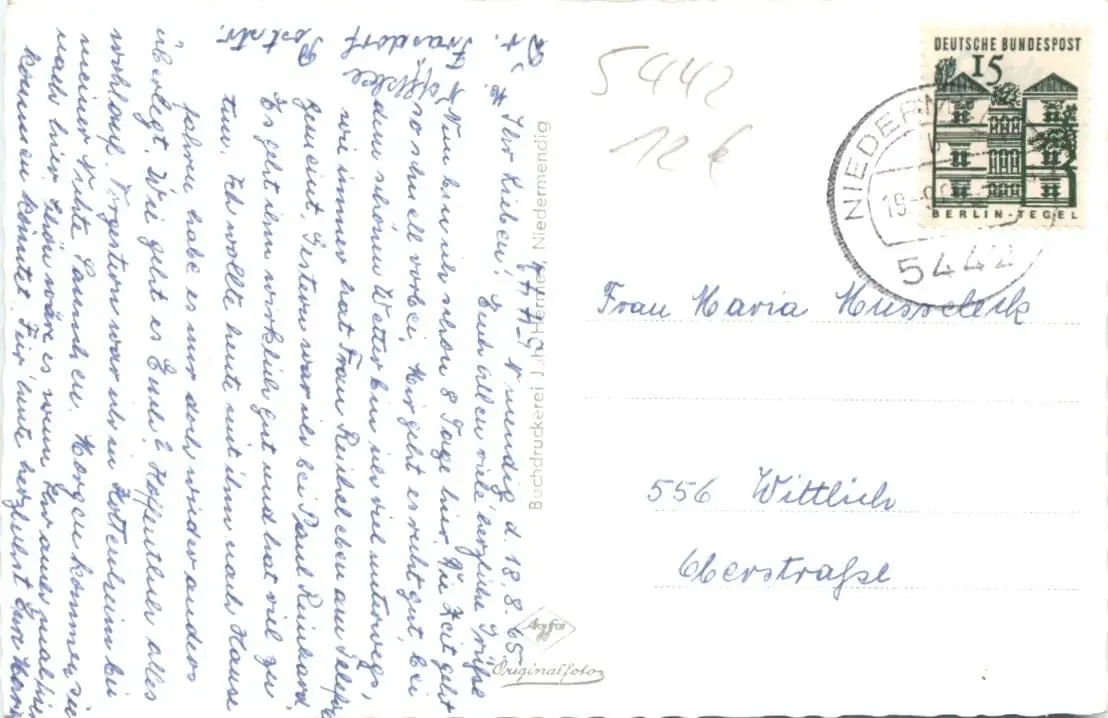 N'mendig d. 18.8.65
Ihr Lieben! Euch allen viele herzliche Grüße
Nun bin ich schon 8 Tage hier. Die Zeit geht
so schnell vorbei, Mir geht es recht gut, bei
dem schönen Wetter bin ich viel unterwegs,
wie immer hat Frau Reichel eben am Telefon
gemeint. Gestern war ich bei Paul Reinhard,
Es geht ihm wirklich gut und hat viel zu
tun. Ich wollte heute mit ihm nach Hause
fahren habe es mir doch wieder anders
überlegt. Wie geht es Euch? Hoffentlich alles
wohlauf. Vorgestern war ich in Kottenheim bei
meiner Nichte Sannchen. Morgen kommen sie
nach hier. Schön wäre es wenn Ihr auch mal hier
kommen könntet. Für heute herzlichst Eure Maria
Frasdorf
Buchdruckerei J. Hermes, Niedermendig
Agfa
Originalfoto
5442
12 €
DEUTSCHE BUNDESPOST
15
BERLIN-TEGEL
5442
Frau Maria
556 Wittlich
Oberstraße